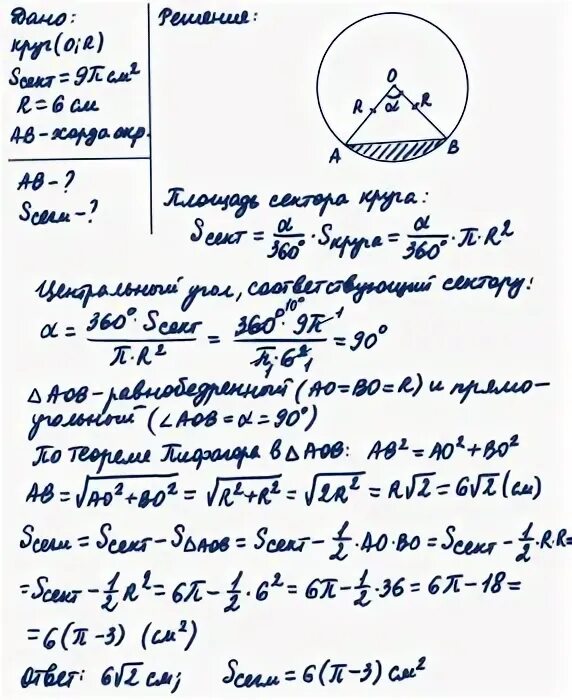 Дано:
круг(O;R)
Sсект = 9π см²
R = 6 см
AB - хорда окр.
AB - ?
Sсегм - ?
Решение:
O
R α R
A B
Площадь сектора круга:
Sсект = α/360° · Sкруга = α/360° · π · R²
Центральный угол, соответствующий сектору:
α = 360° · Sсект / π · R² = 360° 10° · 9π 1 / π 1 · 6² 1 = 90°
△AOB - равнобедренный (AO = BO = R) и прямо-
угольный (∠AOB = α = 90°)
По теореме Пифагора в △AOB: AB² = AO² + BO²
AB = √(AO² + BO²) = √(R² + R²) = √(2R²) = R√2 = 6√2 (см)
Sсегм = Sсект - S△AOB = Sсект - 1/2 · AO · BO = Sсект - 1/2 · R · R =
= Sсект - 1/2 R² = 6π - 1/2 · 6² = 6π - 1/2 · 36 = 6π - 18 =
= 6(π - 3) (см²)
Ответ: 6√2 см; Sсегм = 6(π - 3) см²